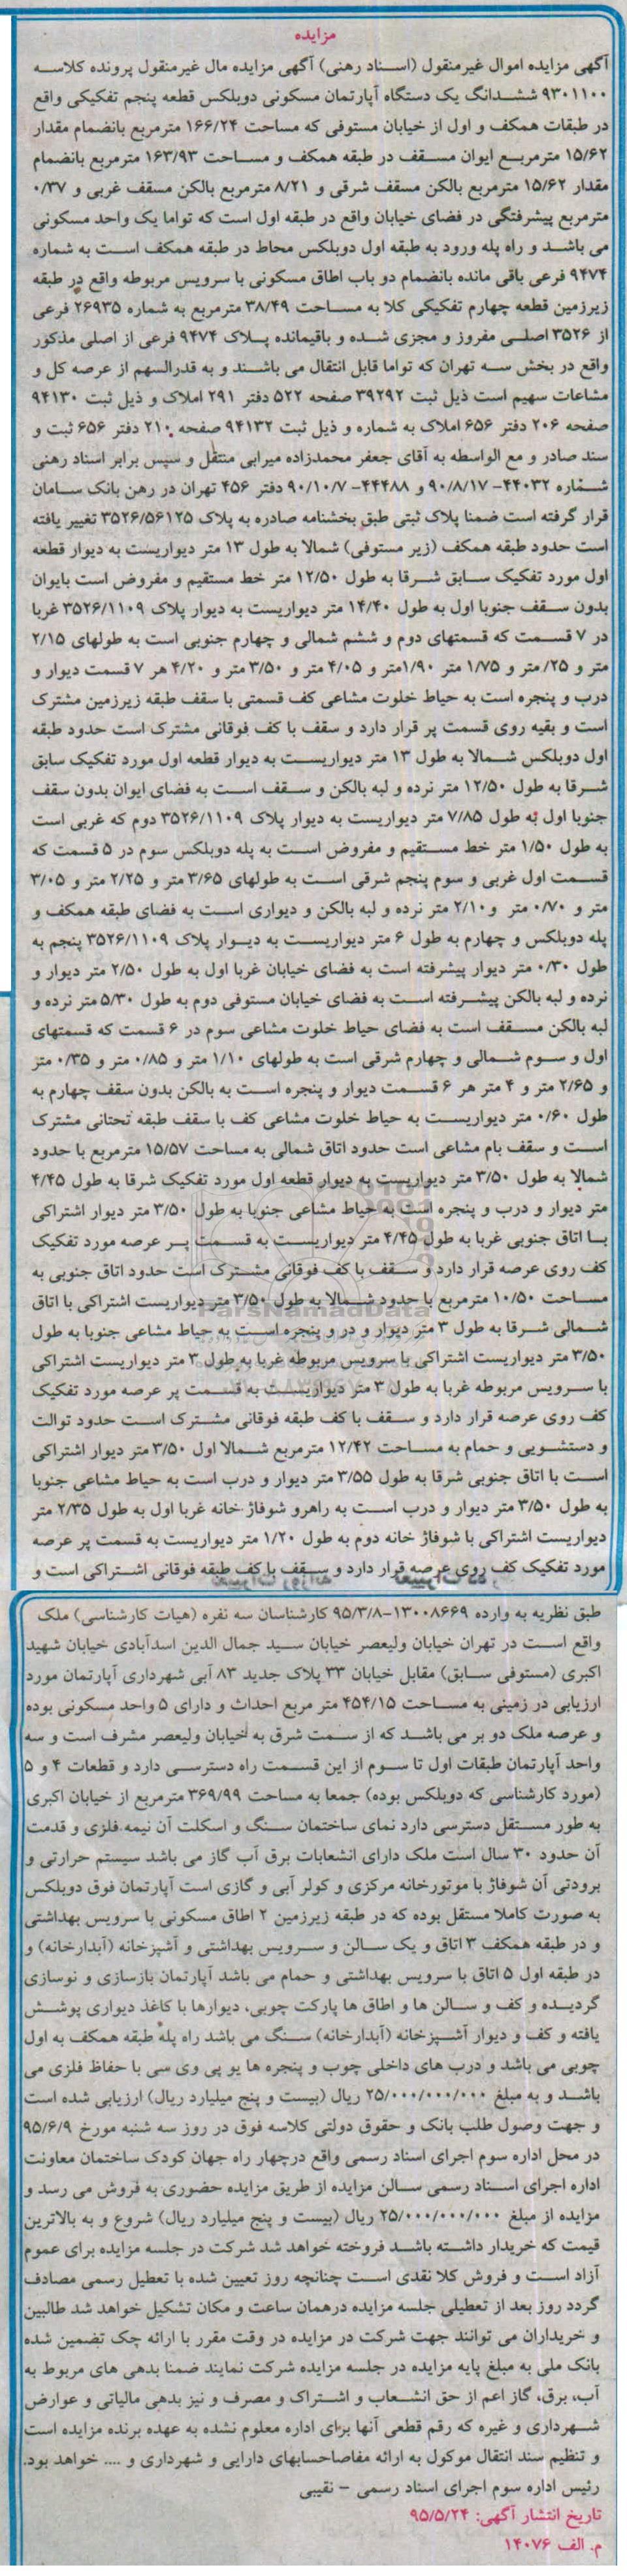 مزایده
آگهی مزایده اموال غیرمنقول (اسناد رهنی) آگهی مزایده مال غیرمنقول پرونده کلاسه
۹۳۰۱۱۰۰ ششدانگ یک دستگاه آپارتمان مسکونی دوبلکس قطعه پنجم تفکیکی واقع
در طبقات همکف و اول از خیابان مستوفی که مساحت ۱۶۶/۲۴ مترمربع بانضمام مقدار
۱۵/۶۲ مترمربع ایوان مسقف در طبقه همکف و مساحت ۱۶۳/۹۳ مترمربع بانضمام
مقدار ۱۵/۶۲ مترمربع بالکن مسقف شرقی و ۸/۲۱ مترمربع بالکن مسقف غربی و ۰/۳۷
مترمربع پیشرفتگی در فضای خیابان واقع در طبقه اول است که تواما یک واحد مسکونی
می باشد و راه پله ورود به طبقه اول دوبلکس محاط در طبقه همکف است به شماره
۹۴۷۴ فرعی باقی مانده بانضمام دو باب اطاق مسکونی با سرویس مربوطه واقع در طبقه
زیرزمین قطعه چهارم تفکیکی کلا به مساحت ۳۸/۴۹ مترمربع به شماره ۲۶۹۳۵ فرعی
از ۳۵۲۶ اصلی مفروز و مجزی شده و باقیمانده پلاک ۹۴۷۴ فرعی از اصلی مذکور
واقع در بخش سه تهران که تواما قابل انتقال می باشند و به قدرالسهم از عرصه کل و
مشاعات سهیم است ذیل ثبت ۳۹۲۹۲ صفحه ۵۲۲ دفتر ۲۹۱ املاک و ذیل ثبت ۹۴۱۳۰
صفحه ۲۰۶ دفتر ۶۵۶ املاک به شماره و ذیل ثبت ۹۴۱۳۲ صفحه ۲۱۰ دفتر ۶۵۶ ثبت و
سند صادر و مع الواسطه به آقای جعفر محمدزاده میرابی منتقل و سپس برابر اسناد رهنی
شماره ۴۴۰۳۲- ۹۰/۸/۱۷ و ۴۴۴۸۸- ۹۰/۱۰/۷ دفتر ۴۵۶ تهران در رهن بانک سامان
قرار گرفته است ضمنا پلاک ثبتی طبق بخشنامه صادره به پلاک ۳۵۲۶/۵۶۱۲۵ تغییر یافته
است حدود طبقه همکف (زیر مستوفی) شمالا به طول ۱۳ متر دیواریست به دیوار قطعه
اول مورد تفکیک سابق شرقا به طول ۱۲/۵۰ متر خط مستقیم و مفروض است بایوان
بدون سقف جنوبا اول به طول ۱۴/۴۰ متر دیواریست به دیوار پلاک ۳۵۲۶/۱۱۰۹ غربا
در ۷ قسمت که قسمتهای دوم و ششم شمالی و چهارم جنوبی است به طولهای ۲/۱۵
متر و ۲۵/متر و ۱/۷۵ متر ۱/۹۰متر و ۴/۰۵ متر و ۳/۵۰ متر و ۴/۲۰ هر ۷ قسمت دیوار و
درب و پنجره است به حیاط خلوت مشاعی کف قسمتی با سقف طبقه زیرزمین مشترک
است و بقیه روی قسمت پر قرار دارد و سقف با کف فوقانی مشترک است حدود طبقه
اول دوبلکس شمالا به طول ۱۳ متر دیواریست به دیوار قطعه اول مورد تفکیک سابق
شرقا به طول ۱۲/۵۰ متر نرده و لبه بالکن و سقف است به فضای ایوان بدون سقف
جنوبا اول به طول ۷/۸۵ متر دیواریست به دیوار پلاک ۳۵۲۶/۱۱۰۹ دوم که غربی است
به طول ۱/۵۰ متر خط مستقیم و مفروض است به پله دوبلکس سوم در ۵ قسمت که
قسمت اول غربی و سوم پنجم شرقی است به طولهای ۳/۶۵ متر و ۲/۲۵ متر و ۳/۰۵
متر و ۰/۷۰ متر و۲/۱۰ متر نرده و لبه بالکن و دیواری است به فضای طبقه همکف و
پله دوبلکس و چهارم به طول ۶ متر دیواریست به دیوار پلاک ۳۵۲۶/۱۱۰۹ پنجم به
طول ۰/۳۰ متر دیوار پیشرفته است به فضای خیابان غربا اول به طول ۲/۵۰ متر دیوار و
نرده و لبه بالکن پیشرفته است به فضای خیابان مستوفی دوم به طول ۵/۳۰ متر نرده و
لبه بالکن مسقف است به فضای حیاط خلوت مشاعی سوم در ۶ قسمت که قسمتهای
اول و سوم شمالی و چهارم شرقی است به طولهای ۱/۱۰ متر و ۰/۸۵ متر و ۰/۳۵ متر
و ۲/۶۵ متر و ۴ متر هر ۶ قسمت دیوار و پنجره است به بالکن بدون سقف چهارم به
طول ۰/۶۰ متر دیواریست به حیاط خلوت مشاعی کف با سقف طبقه تحتانی مشترک
است و سقف بام مشاعی است حدود اتاق شمالی به مساحت ۱۵/۵۷ مترمربع با حدود
شمالا به طول ۳/۵۰ متر دیواریست به دیوار قطعه اول مورد تفکیک شرقا به طول ۴/۴۵
متر دیوار و درب و پنجره است به حیاط مشاعی جنوبا به طول ۳/۵۰ متر دیوار اشتراکی
با اتاق جنوبی غربا به طول ۴/۴۵ متر دیواریست به قسمت پر عرصه مورد تفکیک
کف روی عرصه قرار دارد و سقف با کف فوقانی مشترک است حدود اتاق جنوبی به
مساحت ۱۰/۵۰ مترمربع با حدود شمالا به طول ۳/۵۰ متر دیواریست اشتراکی با اتاق
شمالی شرقا به طول ۳ متر دیوار و در و پنجره است به حیاط مشاعی جنوبا به طول
۳/۵۰ متر دیواریست اشتراکی با سرویس مربوطه غربا به طول ۳ متر دیواریست اشتراکی
با سرویس مربوطه غربا به طول ۳ متر دیواریست به قسمت پر عرصه مورد تفکیک
کف روی عرصه قرار دارد و سقف با کف طبقه فوقانی مشترک است حدود توالت
و دستشویی و حمام به مساحت ۱۲/۴۲ مترمربع شمالا اول ۳/۵۰ متر دیوار اشتراکی
است با اتاق جنوبی شرقا به طول ۳/۵۵ متر دیوار و درب است به حیاط مشاعی جنوبا
به طول ۳/۵۰ متر دیوار و درب است به راهرو شوفاژ خانه غربا اول به طول ۲/۳۵ متر
دیواریست اشتراکی با شوفاژ خانه دوم به طول ۱/۲۰ متر دیواریست به قسمت پر عرصه
مورد تفکیک کف روی عرصه قرار دارد و سقف با کف طبقه فوقانی اشتراکی است و
طبق نظریه به وارده ۱۳۰۰۸۶۶۹-۹۵/۳/۸ کارشناسان سه نفره (هیات کارشناسی) ملک
واقع است در تهران خیابان ولیعصر خیابان سید جمال الدین اسدآبادی خیابان شهید
اکبری (مستوفی سابق) مقابل خیابان ۳۳ پلاک جدید ۸۳ آبی شهرداری آپارتمان مورد
ارزیابی در زمینی به مساحت ۴۵۴/۱۵ متر مربع احداث و دارای ۵ واحد مسکونی بوده
و عرصه ملک دو بر می باشد که از سمت شرق به خیابان ولیعصر مشرف است و سه
واحد آپارتمان طبقات اول تا سوم از این قسمت راه دسترسی دارد و قطعات ۴ و ۵
(مورد کارشناسی که دوبلکس بوده) جمعا به مساحت ۳۶۹/۹۹ مترمربع از خیابان اکبری
به طور مستقل دسترسی دارد نمای ساختمان سنگ و اسکلت آن نیمه فلزی و قدمت
آن حدود ۳۰ سال است ملک دارای انشعابات برق آب گاز می باشد سیستم حرارتی و
برودتی آن شوفاژ با موتورخانه مرکزی و کولر آبی و گازی است آپارتمان فوق دوبلکس
به صورت کاملا مستقل بوده که در طبقه زیرزمین ۲ اطاق مسکونی با سرویس بهداشتی
و در طبقه همکف ۳ اتاق و یک سالن و سرویس بهداشتی و آشپزخانه (آبدارخانه) و
در طبقه اول ۵ اتاق با سرویس بهداشتی و حمام می باشد آپارتمان بازسازی و نوسازی
گردیده و کف و سالن ها و اطاق ها پارکت چوبی، دیوارها با کاغذ دیواری پوشش
یافته و کف و دیوار آشپزخانه (آبدارخانه) سنگ می باشد راه پله طبقه همکف به اول
چوبی می باشد و درب های داخلی چوب و پنجره ها یو پی وی سی با حفاظ فلزی می
باشد و به مبلغ ۲۵/۰۰۰/۰۰۰/۰۰۰ ریال (بیست و پنج میلیارد ریال) ارزیابی شده است
و جهت وصول طلب بانک و حقوق دولتی کلاسه فوق در روز سه شنبه مورخ ۹۵/۶/۹
در محل اداره سوم اجرای اسناد رسمی واقع درچهار راه جهان کودک ساختمان معاونت
اداره اجرای اسناد رسمی سالن مزایده از طریق مزایده حضوری به فروش می رسد و
مزایده از مبلغ ۲۵/۰۰۰/۰۰۰/۰۰۰ ریال (بیست و پنج میلیارد ریال) شروع و به بالاترین
قیمت که خریدار داشته باشد فروخته خواهد شد شرکت در جلسه مزایده برای عموم
آزاد است و فروش کلا نقدی است چنانچه روز تعیین شده با تعطیل رسمی مصادف
گردد روز بعد از تعطیلی جلسه مزایده درهمان ساعت و مکان تشکیل خواهد شد طالبین
و خریداران می توانند جهت شرکت در مزایده در وقت مقرر با ارائه چک تضمین شده
بانک ملی به مبلغ پایه مزایده در جلسه مزایده شرکت نمایند ضمنا بدهی های مربوط به
آب، برق، گاز اعم از حق انشعاب و اشتراک و مصرف و نیز بدهی مالیاتی و عوارض
شهرداری و غیره که رقم قطعی آنها برای اداره معلوم نشده به عهده برنده مزایده است
و تنظیم سند انتقال موکول به ارائه مفاصاحسابهای دارایی و شهرداری و .... خواهد بود.
رئیس اداره سوم اجرای اسناد رسمی – نقیبی
تاریخ انتشار آگهی: ۹۵/۵/۲۴
م. الف ۱۴۰۷۶
ParsNamadData